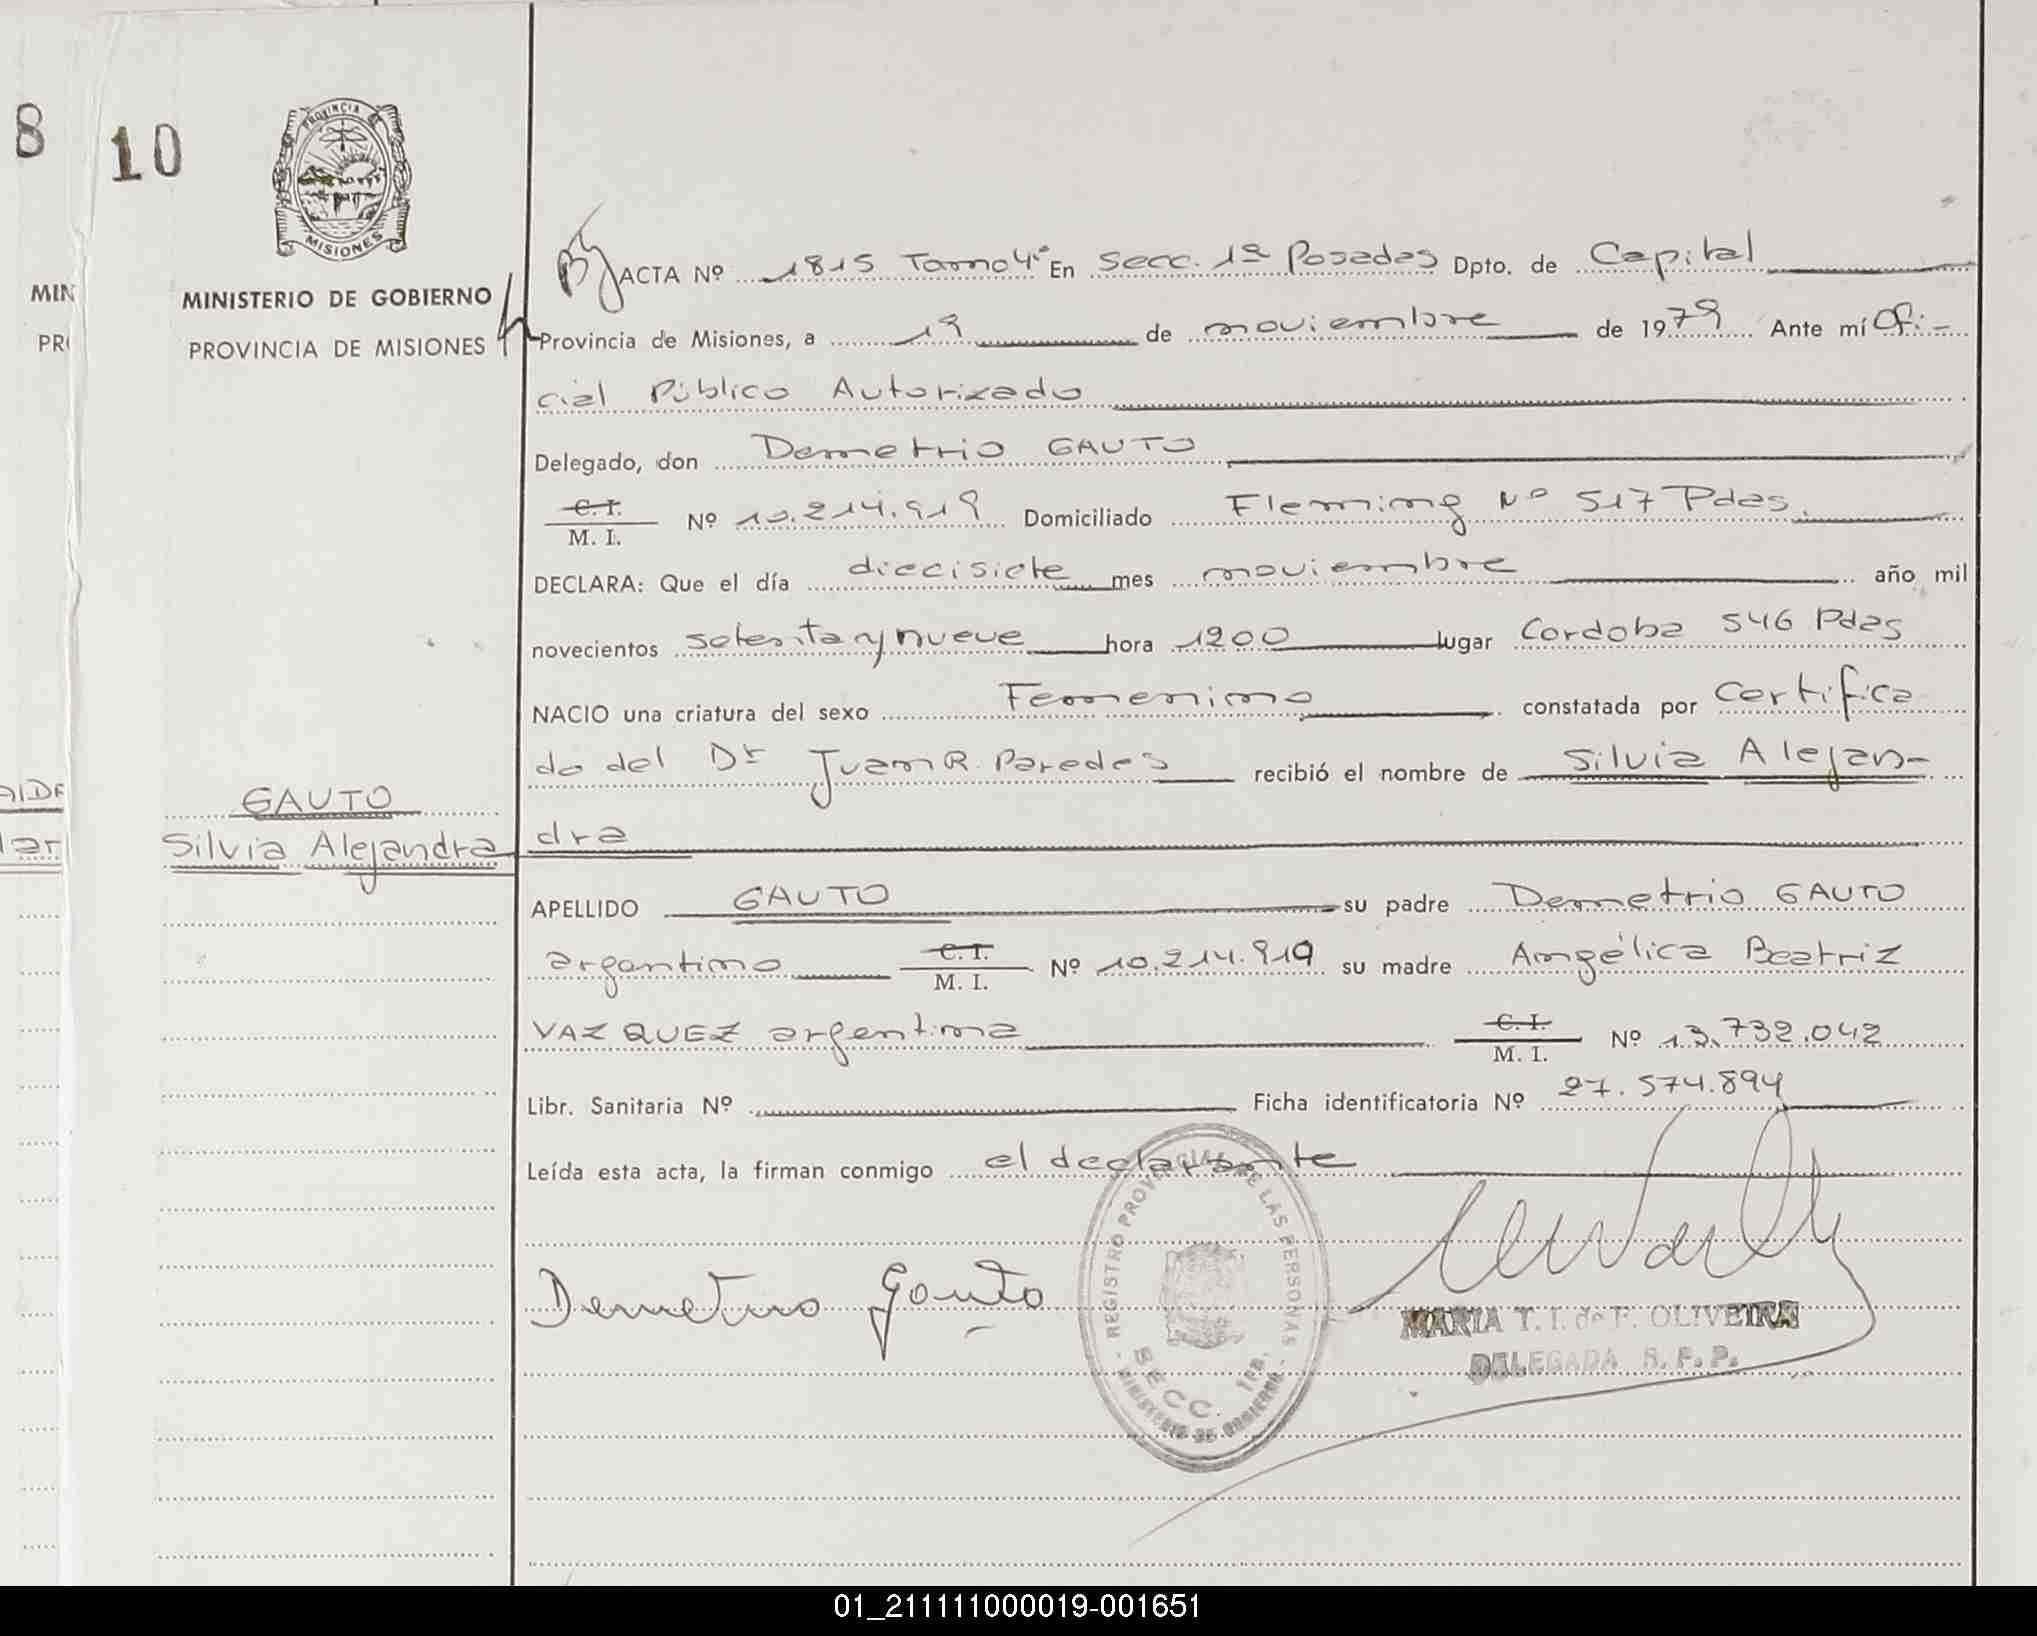 8
10
PROVINCIA
MISIONES
MIN
MINISTERIO DE GOBIERNO
PROVINCIA DE MISIONES
ACTA Nº 1815 Tomo 4º En Secc. 1ª Posadas Dpto. de Capital
Provincia de Misiones, a 19 de noviembre de 1979 Ante mí Ofi-
cial Público Autorizado
Delegado, don Demetrio GAUTO
C. I.
M. I.
Nº 10.214.919 Domiciliado Fleming Nº 517 Pdas.
DECLARA: Que el día diecisiete mes noviembre año mil
novecientos setenta y nueve hora 1200 lugar Cordoba 546 Pdas
NACIO una criatura del sexo Femenino constatada por Certifica
do del Dr Juan R. Paredes recibió el nombre de Silvia Alejan-
dra
GAUTO
Silvia Alejandra
APELLIDO GAUTO su padre Demetrio GAUTO
argentino C. I. M. I. Nº 10.214.919 su madre Angélica Beatriz
VAZQUEZ argentina C. I. M. I. Nº 13.732.042
Libr. Sanitaria Nº Ficha identificatoria Nº 27.574.894
Leída esta acta, la firman conmigo el declarante
Demetrio Gauto
- REGISTRO PROVINCIAL DE LAS PERSONAS -
SECC. 1RA.
MINISTERIO DE GOBIERNO
MARIA T. I. de F. OLIVEIRA
DELEGADA R. P. P.
01_211111000019-001651